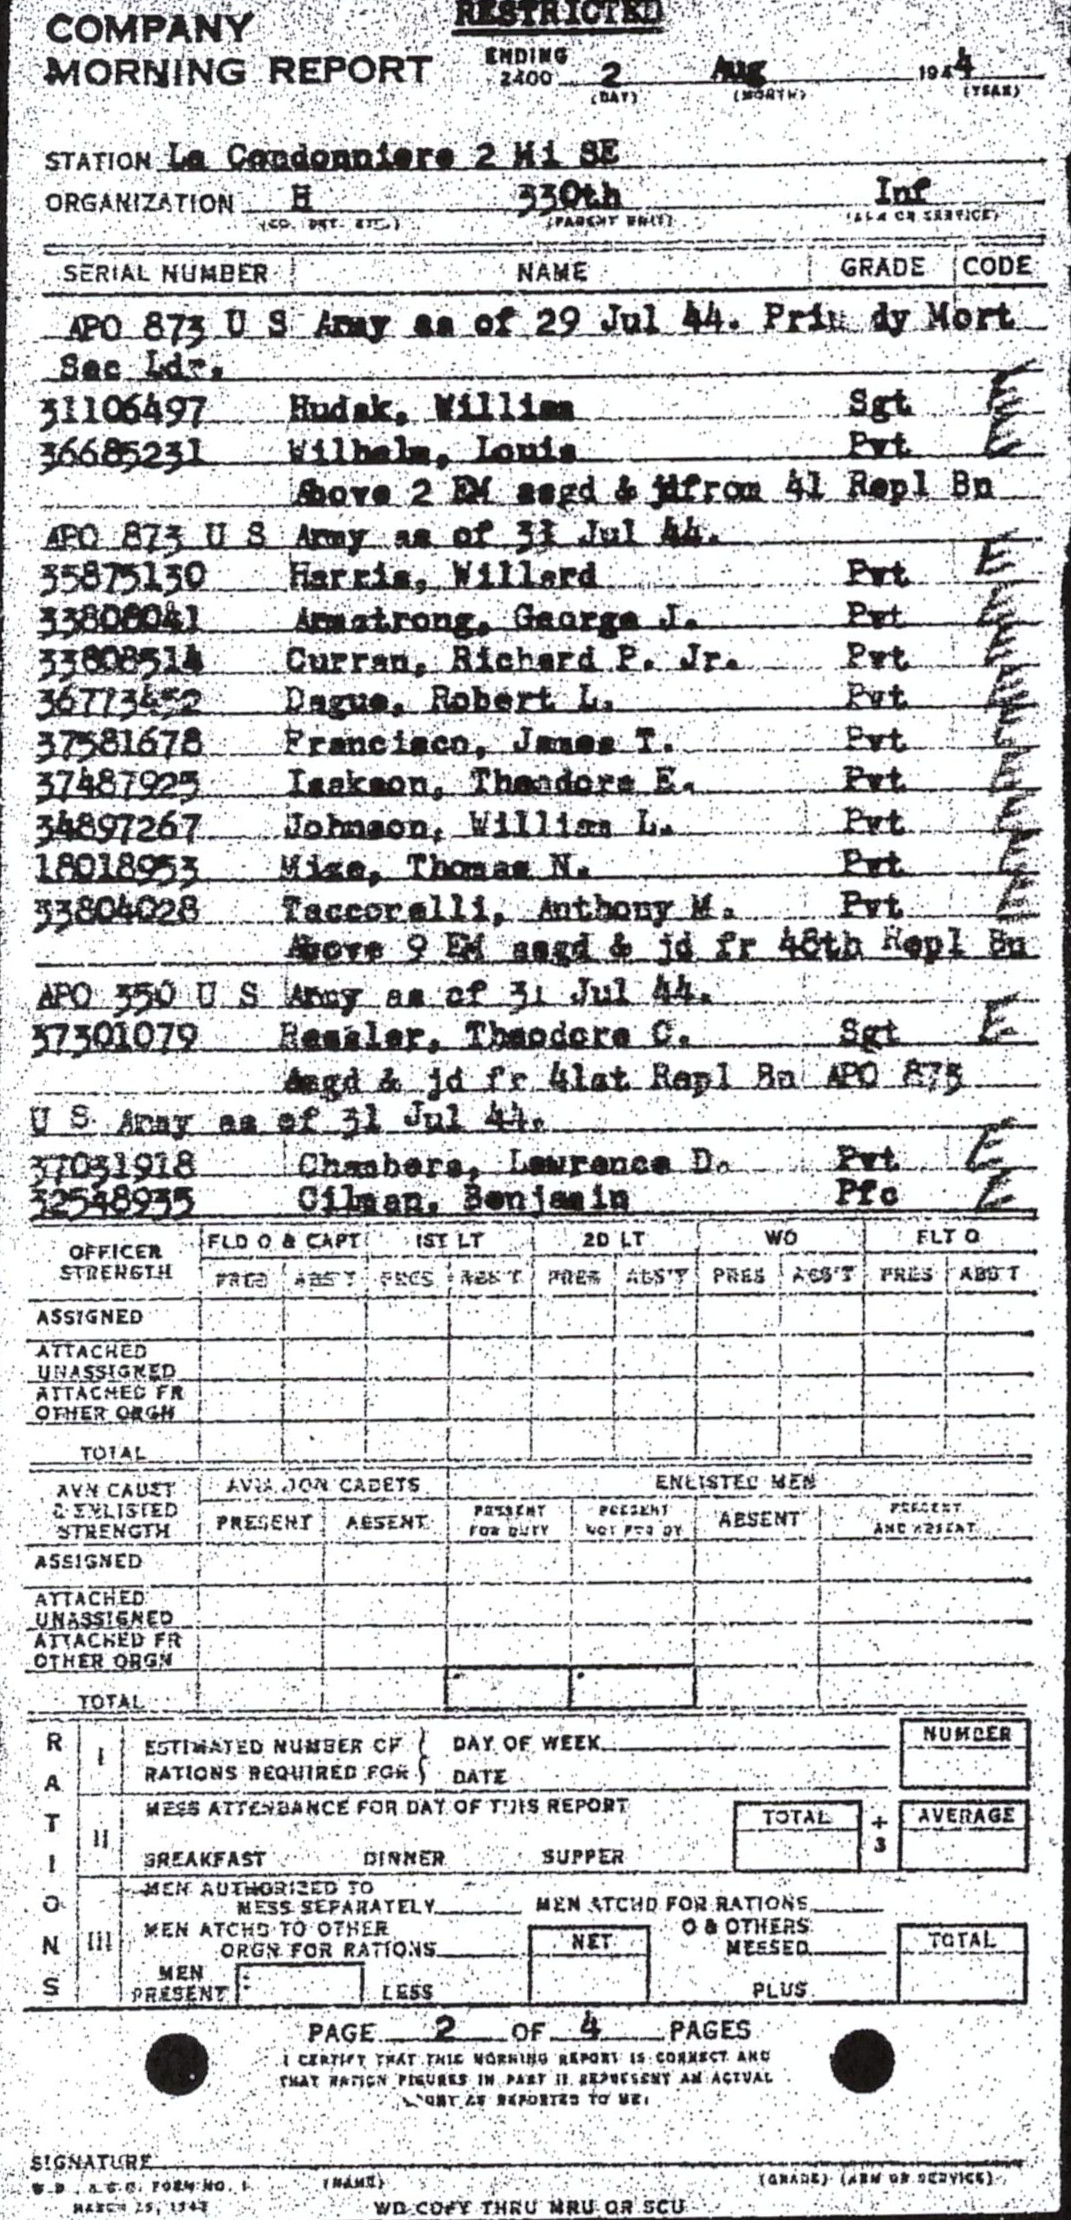 RESTRICTED
COMPANY
MORNING REPORT
ENDING 2400 2 Aug 1944
(DAY) (MONTH) (YEAR)
STATION La Condonniere 2 Mi SE
ORGANIZATION H 330th Inf
(CO. DET. ETC.) (PARENT UNIT) (ARM OR SERVICE)
SERIAL NUMBER NAME GRADE CODE
APO 873 U S Army as of 29 Jul 44. Prin dy Mort
Sec Ldr.
31106497 Hudak, William Sgt E
36685231 Wilhelm, Louis Pvt E
Above 2 EM asgd & jdfrom 41 Repl Bn
APO 873 U S Army as of 31 Jul 44.
35875130 Harris, Willard Pvt E
33808041 Armstrong, George J. Pvt E
33808514 Curran, Richard P. Jr. Pvt E
36773452 Dague, Robert L. Pvt E
37581678 Francisco, James T. Pvt E
37487925 Isakson, Theodore E. Pvt E
34897267 Johnson, William L. Pvt E
18018953 Mize, Thomas N. Pvt E
33804028 Taccorelli, Anthony M. Pvt E
Above 9 EM asgd & jd fr 48th Repl Bn
APO 350 U S Army as of 31 Jul 44.
37301079 Ressler, Theodore C. Sgt E
Asgd & jd fr 41st Repl Bn APO 873
U S Army as of 31 Jul 44.
37031918 Chambers, Lawrence D. Pvt E
32548935 Gilman, Benjamin Pfc E
OFFICER STRENGTH FLD O & CAPT 1ST LT 2D LT WO FLT O
PRES ABS'T PRES ABS'T PRES ABS'T PRES ABS'T PRES ABS'T
ASSIGNED
ATTACHED
UNASSIGNED
ATTACHED FR
OTHER ORGN
TOTAL
AVN CADET & ENLISTED STRENGTH AVIATION CADETS ENLISTED MEN
PRESENT ABSENT PRESENT FOR DUTY PRESENT NOT FOR DY ABSENT PRESENT AND ABSENT
ASSIGNED
ATTACHED
UNASSIGNED
ATTACHED FR
OTHER ORGN
TOTAL
RATIONS
I ESTIMATED NUMBER OF DAY OF WEEK NUMBER
RATIONS REQUIRED FOR DATE
II MESS ATTENDANCE FOR DAY OF THIS REPORT TOTAL ÷ 3 AVERAGE
BREAKFAST DINNER SUPPER
III MEN AUTHORIZED TO
MESS SEPARATELY MEN ATCHD FOR RATIONS
MEN ATCHD TO OTHER
ORGN FOR RATIONS NET O & OTHERS
MESSED TOTAL
MEN
PRESENT LESS PLUS
PAGE 2 OF 4 PAGES
I CERTIFY THAT THIS MORNING REPORT IS CORRECT AND
THAT RATION FIGURES IN PART II REPRESENT AN ACTUAL
COUNT AS REPORTED TO ME.
SIGNATURE
W.D., A.G.O. FORM NO. 1 (NAME) (GRADE) (ARM OR SERVICE)
MARCH 25, 1943 WD COPY THRU MRU OR SCU